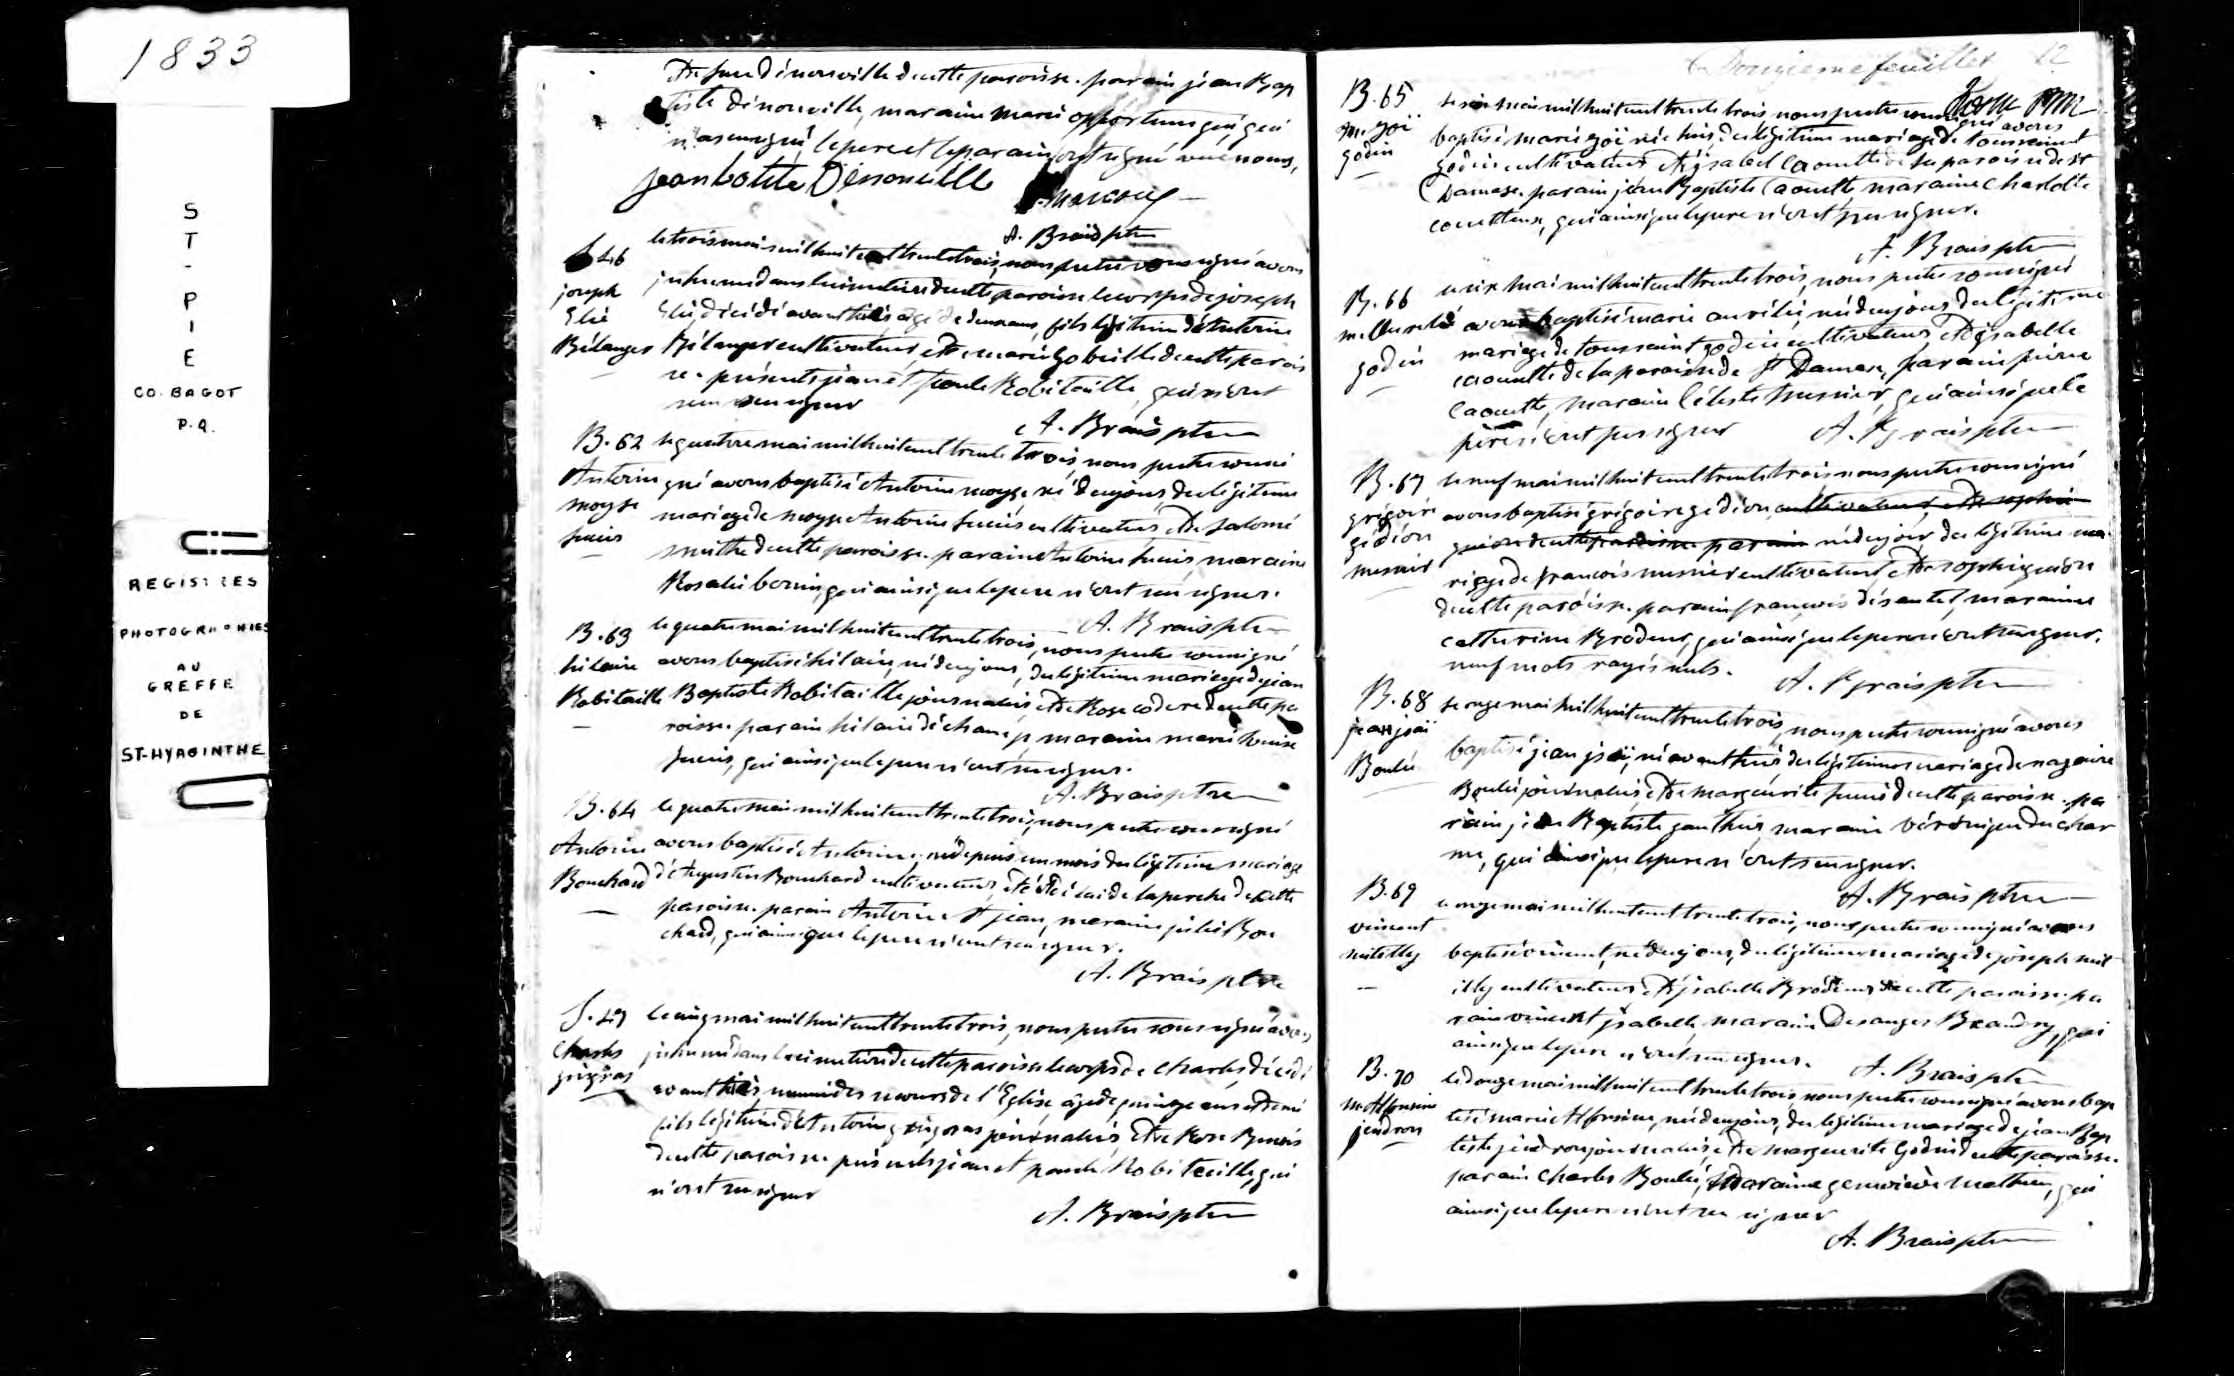 1833
S
T
-
P
I
E
CO. BAGOT
P.Q.
REGISTRES
PHOTOGRAPHIES
AU
GREFFE
DE
ST-HYACINTHE
dénouville de cette paroisse. parain jean Bap
tiste dénouville, maraine marie qui
n'a su signé, le pere et le parain ont signé avec nous,
jean batiste Dénoncille
A. Brais ptre
S. 46
joseph
Elie
Bélanger
le trois mai mil huit cent trente trois, nous pretre sousigné avons
inhumé dans le cimetiere de cette paroisse le corps de joseph
Elie, décédé avant hier agé de deux ans, fils légitime d'Antoine
Bélanger cultivateur et de marie Gobeille de cette parois
se. présents jean et paul Robitaille, qui n'ont
su signer
A. Brais ptre
B. 62
Antoine
moyse
le quatre mai mil huit cent trente trois, nous pretre sousi
gné avons baptisé Antoine moyse, né de ce jour, du légitime
mariage de moyse Antoine cultivateur, et de salomé
de cette paroisse. parain Antoine maraine
Rosalie qui ainsi que le pere n'ont su signer.
A. Brais ptre
B. 63
hilaire
Robitaille
le quatre mai mil huit cent trente trois, nous pretre sousigné
avons baptisé hilaire, né de ce jour, du légitime mariage de jean
Baptiste Robitaille journalier, et de Rose de cette pa
roisse. parain hilaire maraine marie Louise
qui ainsi que le pere n'ont su signer.
A. Brais ptre
B. 64
Antoine
Bouchard
le quatre mai mil huit cent trente trois, nous pretre sousigné
avons baptisé Antoine, né depuis un mois du légitime mariage
d'Augustin Bouchard cultivateur, et de la perche de cette
paroisse. parain Antoine St jean, maraine julie Bou
chard, qui ainsi que le pere n'ont su signer.
A. Brais ptre
S. 47
Charles
grigras
le cinq mai mil huit cent trente trois, nous pretre sousigné avons
inhumé dans le cimetiere de cette paroisse le corps de Charles, décédé
avant hier, muni des secours de l'Eglise, agé de quinze ans et demi
fils légitime d'Antoine grigras journalier, et de Rose Benois
de cette paroisse présents jean et paul Robitaille, qui
n'ont su signer
A. Brais ptre
Douzieme feuillet 12
B. 65
m. zoé
godin
le six mai mil huit cent trente trois nous pretre sousigné avons
baptisé marie zoé née hier, du légitime mariage de toussaint
godin cultivateur et d'isabel Caouette de la paroisse de St
Damase. parain jean Baptiste Caouette, maraine Charlotte
qui ainsi que le pere n'ont su signer.
A. Brais ptre
B. 66
m. Aurelie
godin
le six mai mil huit cent trente trois, nous pretre sousigné
avons baptisé marie aurélie, née de ce jour du légitime
mariage de toussaint godin cultivateur, et d'isabelle
caouette de la paroisse de St Damase, parain pierre
Caouette, maraine Céleste messier, qui ainsi que le
père n'ont pu signer
A. Brais ptre
B. 67
grégoire
gédéon
mesnier
le neuf mai mil huit cent trente trois nous pretre sousigné
avons baptisé grégoire gédéon, cultivateur, et de sophie
guion de cette paroisse. parain né de ce jour, du légitime ma
riage de francois mesnier cultivateur, et de sophie guion
de cette paroisse. parain francois désautel, maraine
catherine Brodeur, qui ainsi que le pere n'ont su signer.
neuf mots rayés nuls.
A. Brais ptre
B. 68
Boulé
le onze mai mil huit cent trente trois, nous pretre sousigné avons
baptisé jean né avant hier du légitime mariage de nazaire
Boulé journalier, et de marguerite de cette paroisse. pa
rain jean Baptiste gauthier, maraine véronique duchar
me, qui ainsi que le pere n'ont su signer.
A. Brais ptre
B. 69
vincent
le onze mai mil huit cent trente trois, nous pretre sousigné avons
baptisé vincent, né de ce jour, du légitime mariage de joseph
cultivateur, et d'isabelle Brodeur de cette paroisse. pa
rain vincent maraine Desanges Beaudry, qui
ainsi que le pere n'ont su signer.
A. Brais ptre
B. 70
m. Alfonsine
jendron
le douze mai mil huit cent trente trois nous pretre sousigné avons bap
tisé marie Alfonsine, née de ce jour, du légitime mariage de jean Bap
tiste jendron journalier, et de marguerite Godin de cette paroisse.
parain Charles Boulé, Maraine genevieve mathieu, qui
ainsi que le pere n'ont su signer
A. Brais ptre